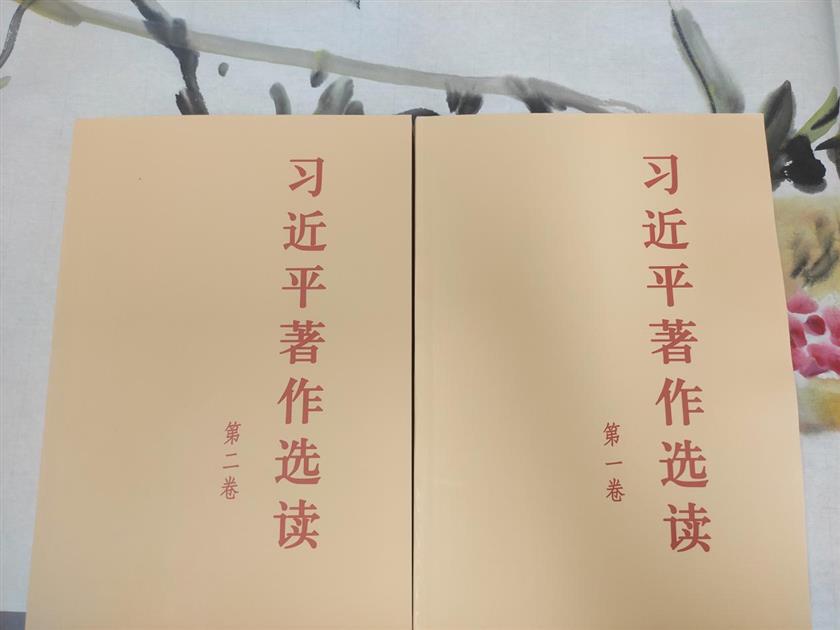 习近平著作选读
第二卷
习近平著作选读
第一卷